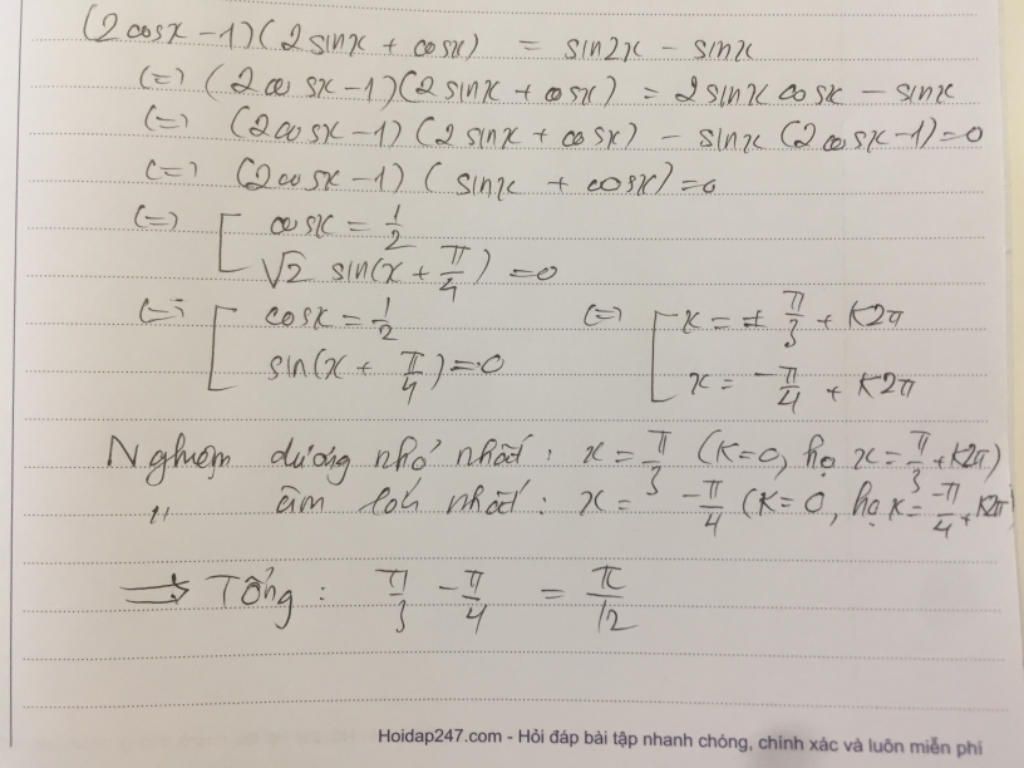 (2cosx − 1)(2sinx + cosx) = sin2x − sinx
(=) (2cosx − 1)(2sinx + cosx) = 2sinx cosx − sinx
(=) (2cosx − 1)(2sinx + cosx) − sinx (2cosx − 1) = 0
(=) (2cosx − 1)(sinx + cosx) = 0
(=) [ cosx = 1/2
√2 sin(x + π/4) = 0
(=) [ cosx = 1/2 (=) [ x = ± π/3 + K2π
sin(x + π/4) = 0 x = −π/4 + K2π
Nghiệm dương nhỏ nhất : x = π/3 (K=0, họ x = π/3 + K2π)
" âm lớn nhất : x = −π/4 (K=0, họ x = −π/4 + K2π)
⟹ Tổng : π/3 − π/4 = π/12
Hoidap247.com - Hỏi đáp bài tập nhanh chóng, chính xác và luôn miễn phí